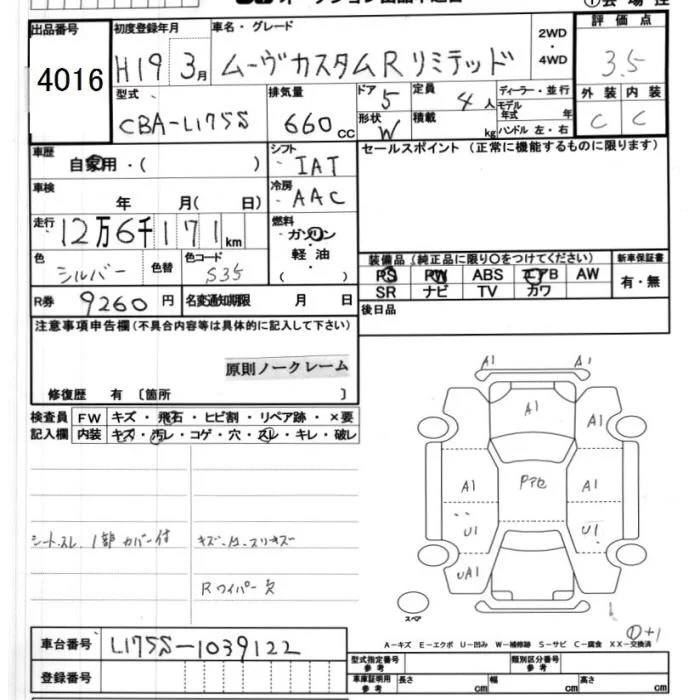 出品番号 初度登録年月 車名・グレード 2WD・4WD 評価点
4016 H19 3月 ムーヴカスタムRリミテッド 3.5
型式 排気量 ドア 5 定員 4人 ディーラー・並行 外装 内装
CBA-L175S 660cc 形状 W 積載 kg モデル年式 年 ハンドル 左・右 C C
車歴 自家用・( ) シフト IAT セールスポイント (正常に機能するものに限ります)
車検 年 月( 日) 冷房 AAC
走行 12万6千171km 燃料 ガソリン・軽油 ( )
色 シルバー 色替 色コード S35 装備品 (純正品に限り〇をつけてください) 新車保証書
PS PW ABS エアB AW 有・無
R券 9260円 名変通知期限 月 日 SR ナビ TV カワ
注意事項申告欄 (不具合内容等は具体的に記入して下さい) 後日品
原則ノークレーム
修復歴 有 〔箇所 〕
検査員 FW キズ・飛石・ヒビ割・リペア跡・×要
記入欄 内装 キズ・汚レ・コゲ・穴・スレ・キレ・破レ
A1 A1
A1
A1 A1
A1 Pアセ A1
U1 U1
UA1
シートスレ 1部カバー付
Rワイパー欠
スペア
①+1
車台番号 L175S-1039122 A-キズ E-エクボ U-凹み W-補修跡 S-サビ C-腐食 XX-交換済
型式指定番号 参考 類別区分番号 参考
登録番号 車庫証明用 参考 長さ cm 幅 cm 高さ cm